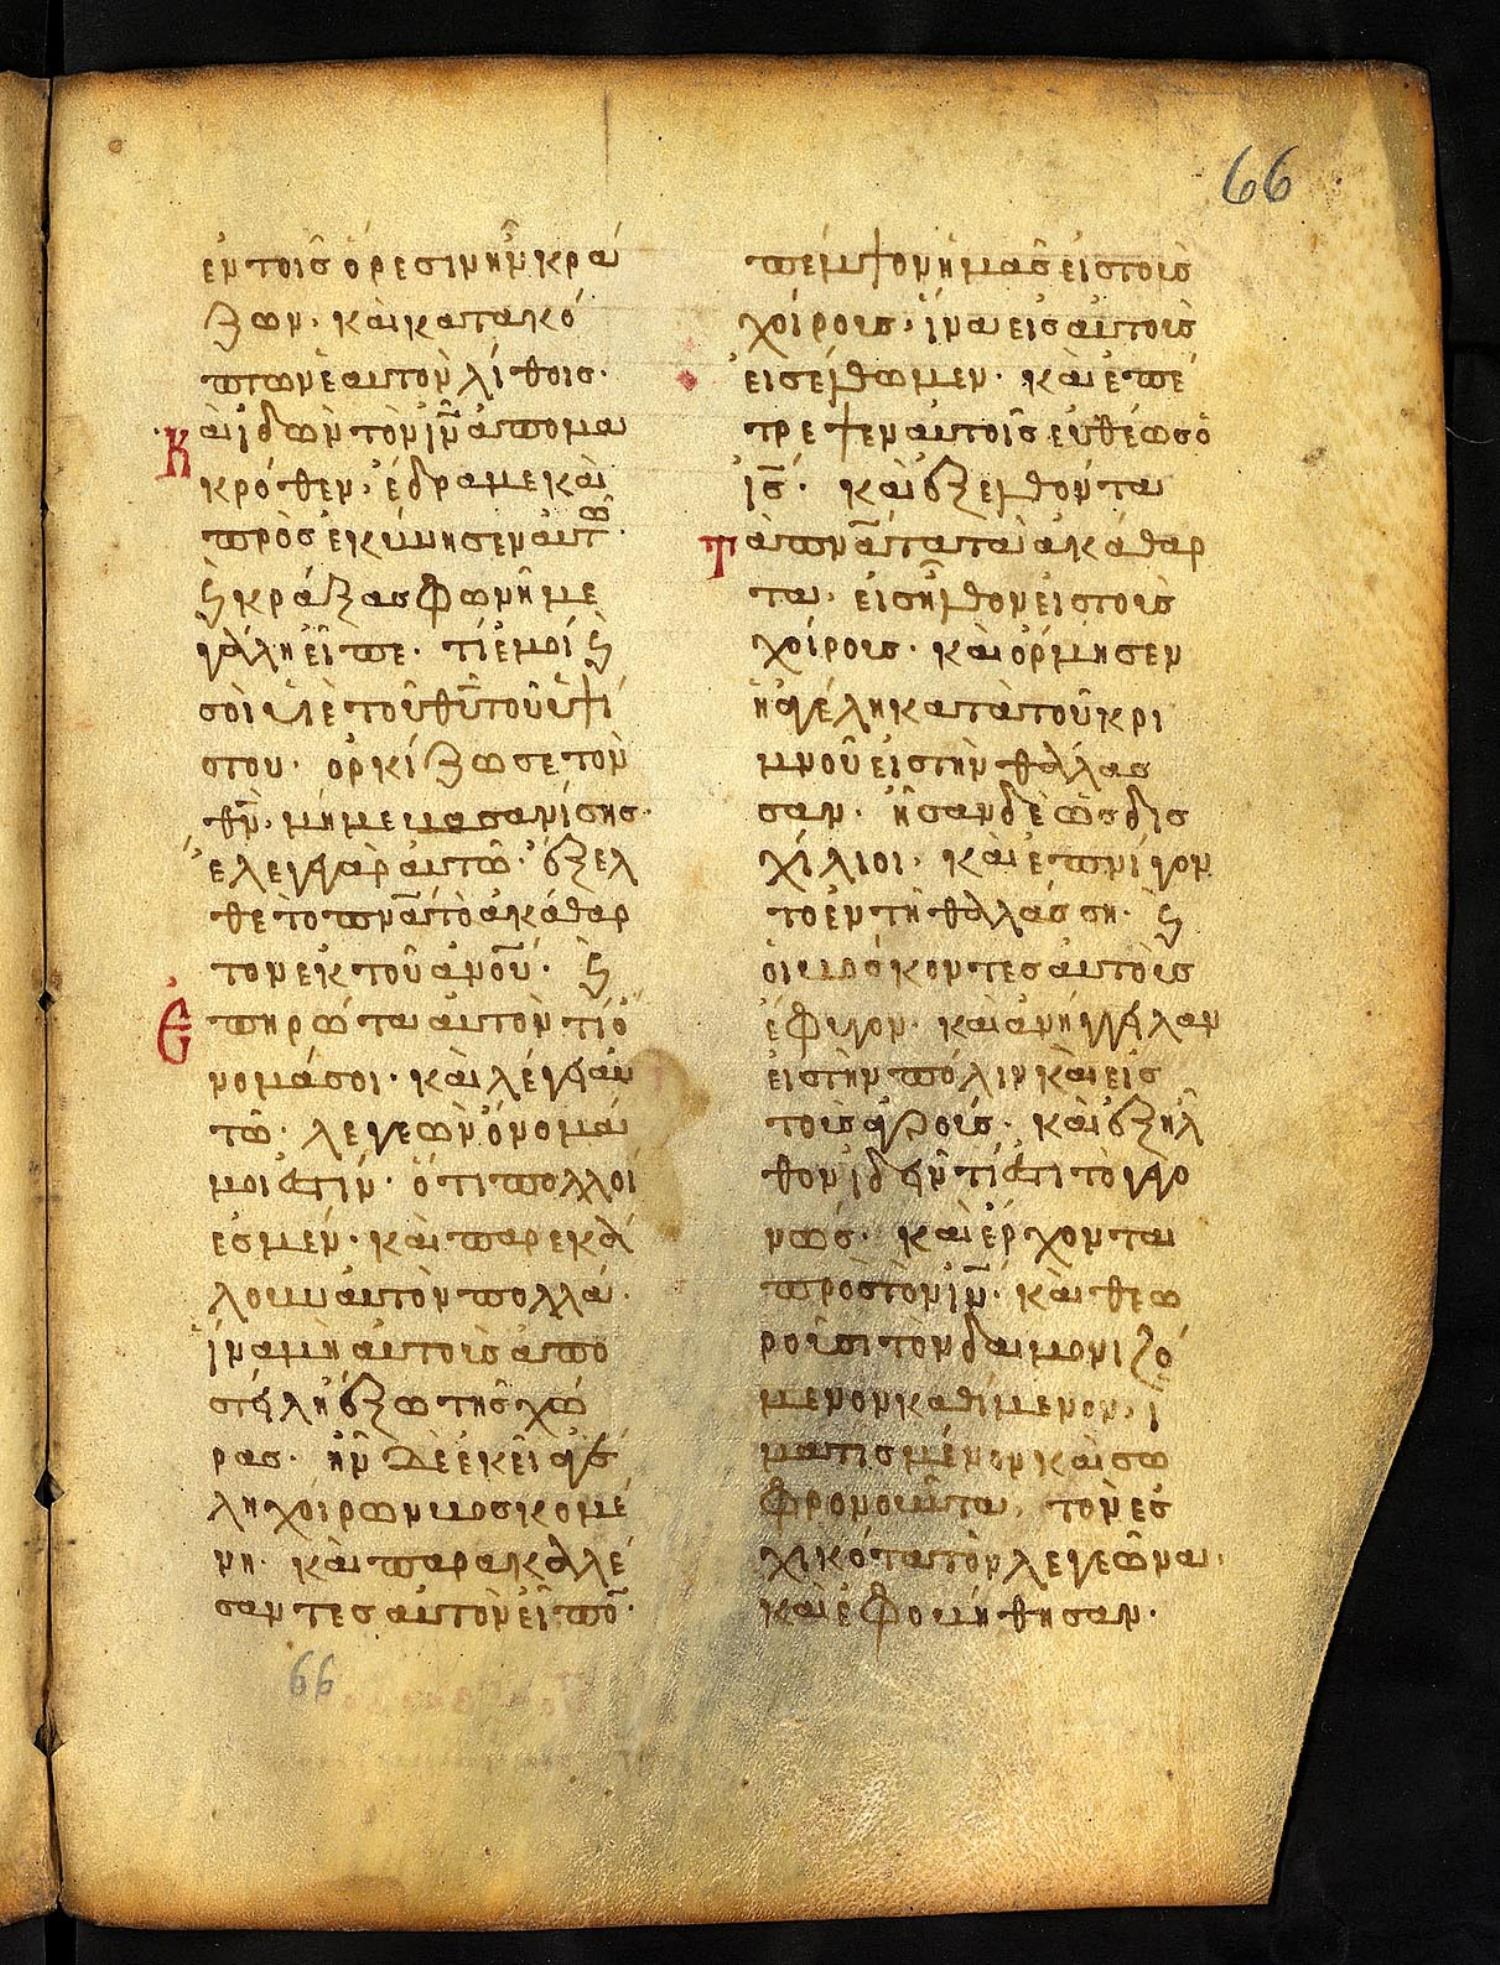 66
ἐν τοῖς ὄρεσιν ἦν κρά
ζων· καὶ κατακό
πτων ἑαυτὸν λίθοις·
Καὶ ἰδὼν τὸν ἰν̅ ἀπὸ μα
κρόθεν, ἔδραμε καὶ
προσεκύνησεν αυτῶ·
ϗ κράξας φωνῆ με
γάλη εἶπε· τί ἐμοὶ ϗ
σοὶ υἱὲ τοῦ θυ̅ τοῦ ὑψί
στου· ὁρκίζω σε τὸν
θν̅, μή με βασανίσης·
ἔλεγε γὰρ αὐτῶ· ἔξελ
θε τὸ πνα̅ τὸ ἀκάθαρ
τον ἐκ τοῦ ἀνου̅· ϗ
Ἐπηρώτα αὐτὸν τί ὄ
νομά σοι· καὶ λέγει αυ
τῶ· λεγεὼν ὄνομά
μοι ἐστίν· ὅτι πολλοί
ἐσμεν· καὶ παρεκά
λουν αὐτὸν πολλά·
ἵνα μὴ αὐτοὺς ἀπο
στείλη ἔξω τῆς χώ
ρας· ἦν δὲ ἐκεῖ ἀγέ
λη χοίρων βοσκομέ
νη· καὶ παρακαλέ
σαντες αὐτὸν εἶπο̅·
66
πέμψον ἡμᾶς εἰς τοὺς
χοίρους, ἵνα εἰς αὐτοὺς
εἰσέλθωμεν· καὶ ἐπέ
τρεψεν αὐτοῖς εὐθέως ὁ
ἰς̅· καὶ ἐξελθόντα
Τὰ πνα̅τα τὰ ἀκάθαρ
τα, εἰσῆλθον εἰς τοὺς
χοίρους· καὶ ὅρμησεν
ἡ ἀγέλη κατὰ τοῦ κρι
μνοῦ εἰς τὴν θάλασ
σαν· ἦσαν δὲ ὡς δισ
χίλιοι, καὶ ἐπνίγον
το ἐν τῆ θαλάσση· ϗ
οἱ βόσκοντες αὐτοὺς
ἔφυγον· καὶ ἀνήγγειλαν
εἰς τὴν πόλιν καὶ εἰς
τοὺς ἀγρούς· καὶ ἐξῆλ
θον ἰδεῖν τί ἐστι τὸ γεγο
νώς· καὶ ἔρχονται
πρὸς τὸν ἰν̅· καὶ θεω
ροῦσι τὸν δαιμονιζό
μενον καθήμενον, ἱ
ματισμένον καὶ σω
φρονοῦντα, τὸν ἐσ
χικότα τὸν λεγεῶνα,
καὶ ἐφοβήθησαν·